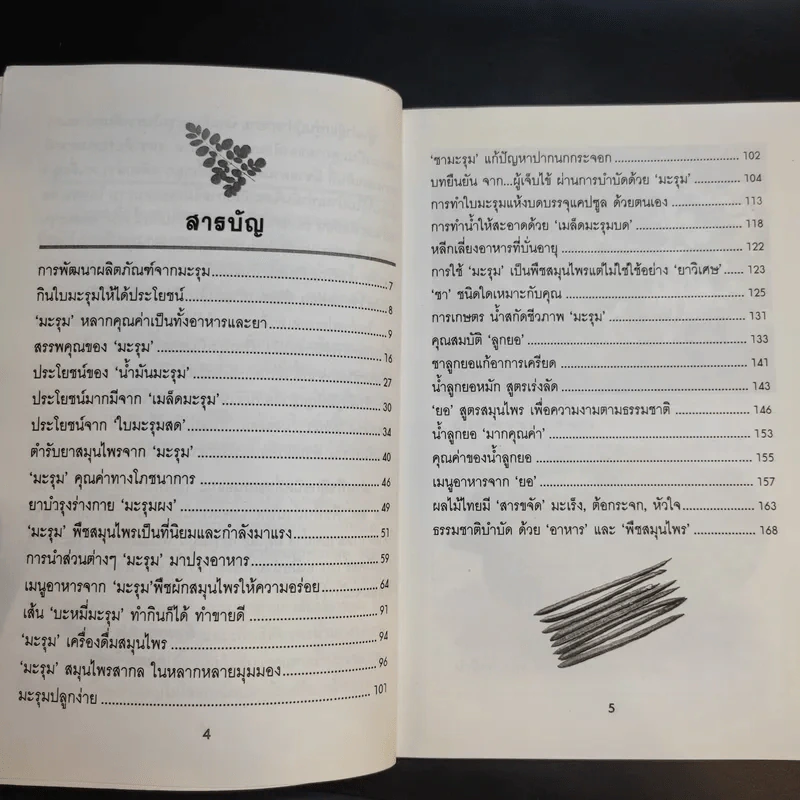 สารบัญ
การพัฒนาผลิตภัณฑ์จากมะรุม 7
กินใบมะรุมให้ได้ประโยชน์ 8
'มะรุม' หลากคุณค่าเป็นทั้งอาหารและยา 9
สรรพคุณของ 'มะรุม' 16
ประโยชน์ของ 'น้ำมันมะรุม' 27
ประโยชน์มากมีจาก 'เมล็ดมะรุม' 30
ประโยชน์จาก 'ใบมะรุมสด' 34
ตำรับยาสมุนไพรจาก 'มะรุม' 40
'มะรุม' คุณค่าทางโภชนาการ 46
ยาบำรุงร่างกาย 'มะรุมผง' 49
'มะรุม' พืชสมุนไพรเป็นที่นิยมและกำลังมาแรง 51
การนำส่วนต่างๆ 'มะรุม' มาปรุงอาหาร 59
เมนูอาหารจาก 'มะรุม'พืชผักสมุนไพรให้ความอร่อย 64
เส้น 'บะหมี่มะรุม' ทำกินก็ได้ ทำขายดี 91
'มะรุม' เครื่องดื่มสมุนไพร 94
'มะรุม' สมุนไพรสากล ในหลากหลายมุมมอง 96
มะรุมปลูกง่าย 101
4
'ชามะรุม' แก้ปัญหาปากนกกระจอก 102
บทยืนยัน จาก...ผู้เจ็บไข้ ผ่านการบำบัดด้วย 'มะรุม' 104
การทำใบมะรุมแห้งบดบรรจุแคปซูล ด้วยตนเอง 113
การทำน้ำให้สะอาดด้วย 'เมล็ดมะรุมบด' 118
หลีกเลี่ยงอาหารที่บั่นอายุ 122
การใช้ 'มะรุม' เป็นพืชสมุนไพรแต่ไม่ใช่ใช้อย่าง 'ยาวิเศษ' 123
'ชา' ชนิดใดเหมาะกับคุณ 125
การเกษตร น้ำสกัดชีวภาพ 'มะรุม' 131
คุณสมบัติ 'ลูกยอ' 133
ชาลูกยอแก้อาการเครียด 141
น้ำลูกยอหมัก สูตรเร่งลัด 143
'ยอ' สูตรสมุนไพร เพื่อความงามตามธรรมชาติ 146
น้ำลูกยอ 'มากคุณค่า' 153
คุณค่าของน้ำลูกยอ 155
เมนูอาหารจาก 'ยอ' 157
ผลไม้ไทยมี 'สารขจัด' มะเร็ง, ต้อกระจก, หัวใจ 163
ธรรมชาติบำบัด ด้วย 'อาหาร' และ 'พืชสมุนไพร' 168
5